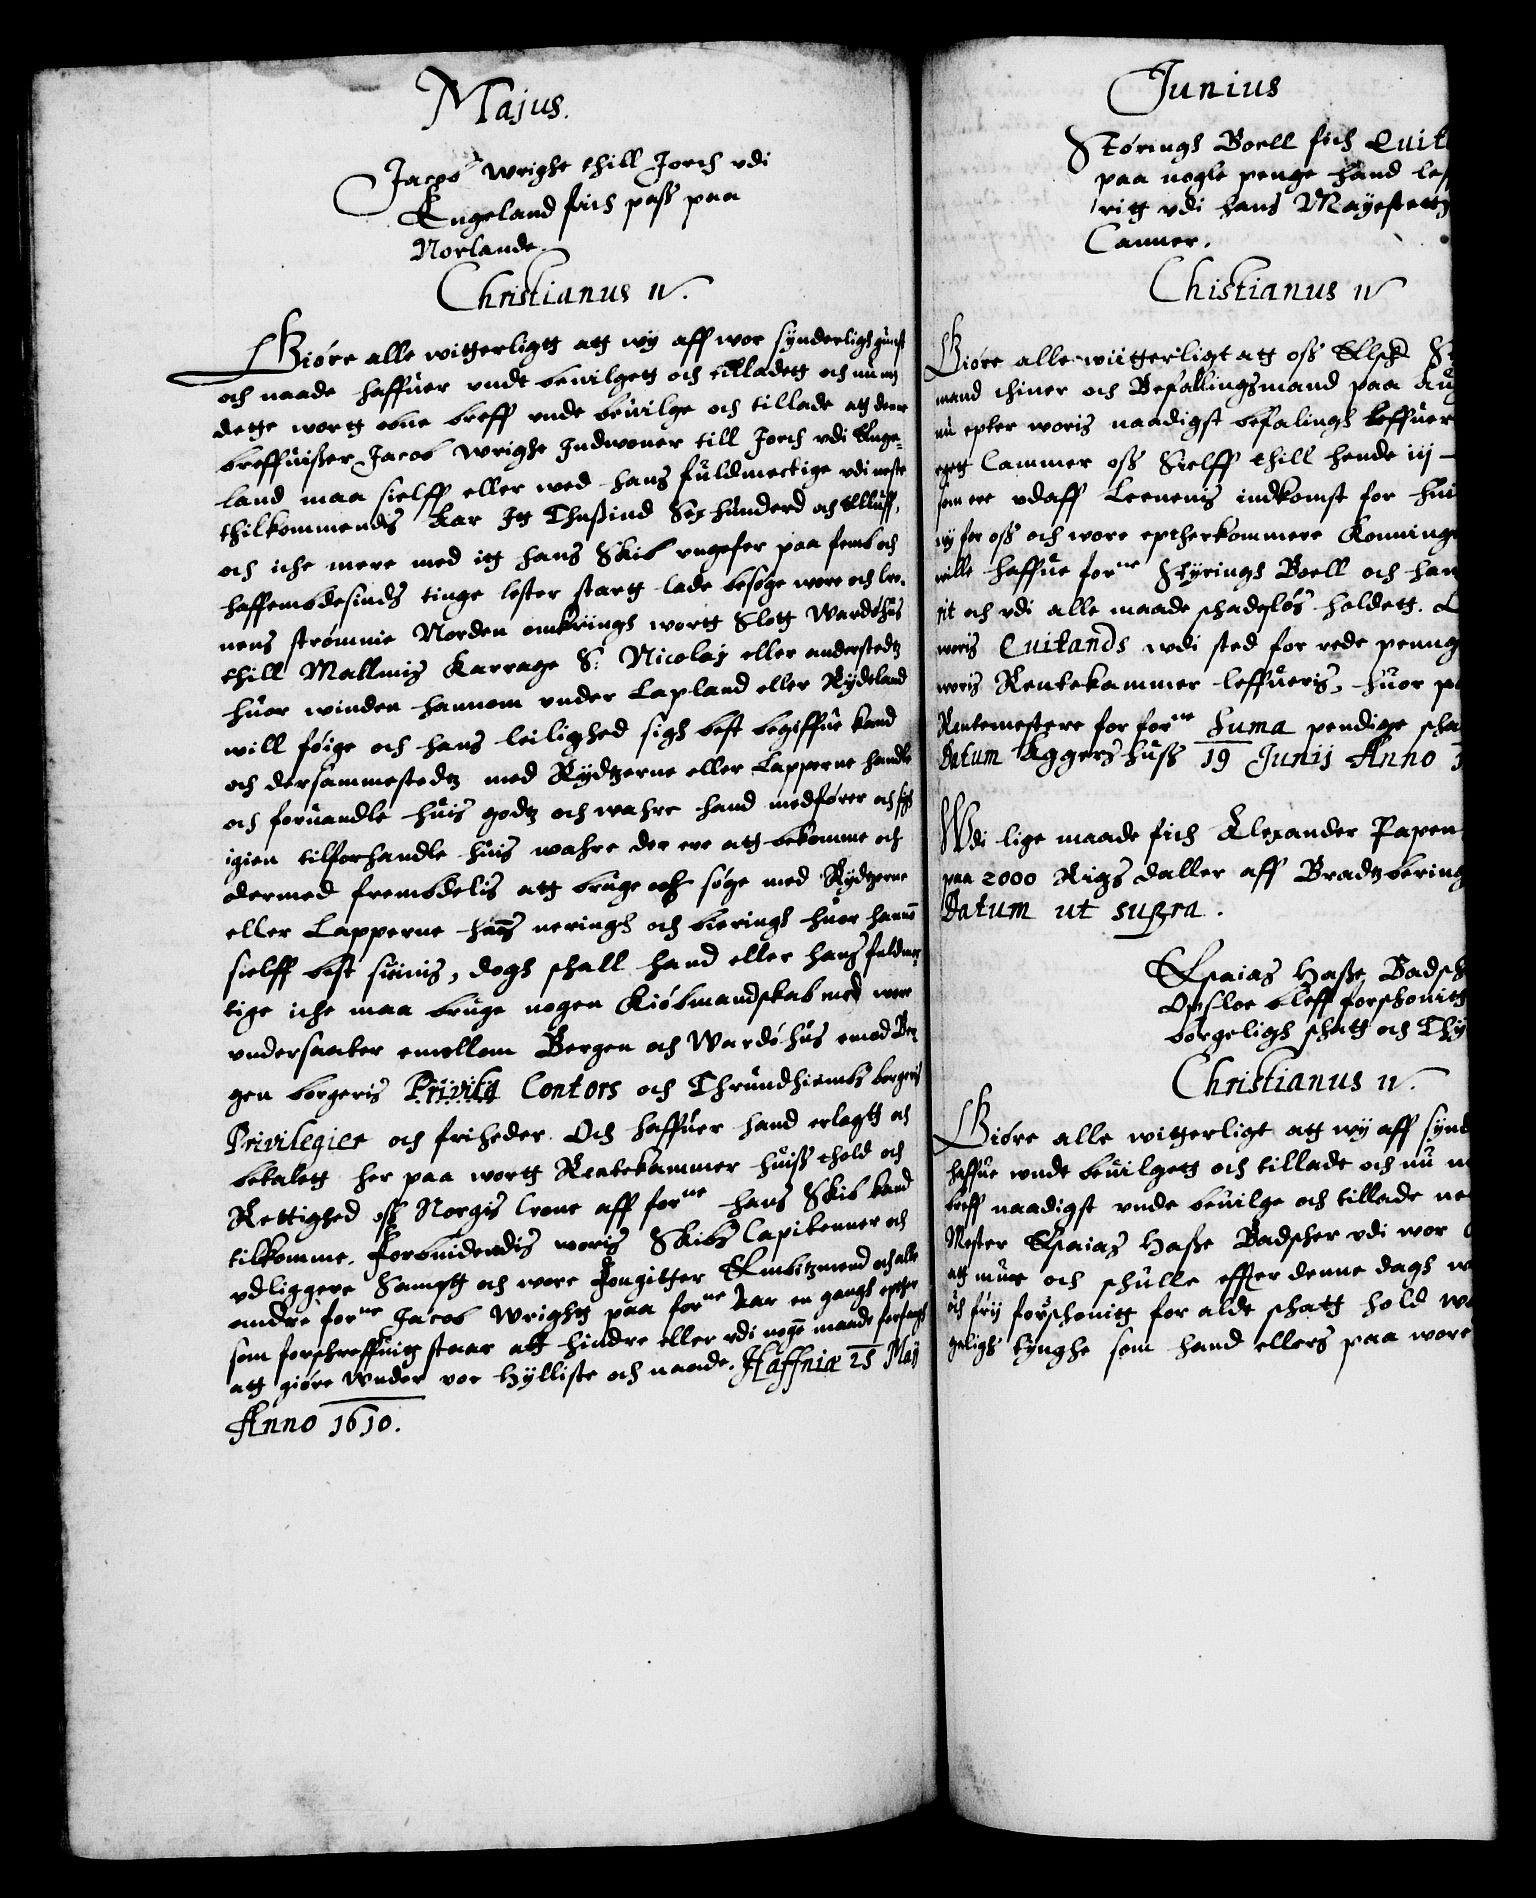 Majus.
Jacob Wrighe thill Jorch vdi
Engeland fich pass paa
Norlande.
Christianus IV.
Giøre alle witterligtt att wy aff wor synderligh gunst
och naade haffuer vndt beuilgett och tilladett och nu med
dette wortt obne breff vnde beuilge och tillade att denne
breffuisser Jacob Wrighe Indwoner till Jorch vdi Enge-
land maa sielff eller wed hans fuldmectige vdi neste
thilkommendis Aar Itt Thussind Sex hunderd och Elluff,
och iche mere med itt hans Skib vngefer paa femb och
haffembdesinds tinge lester startt lade besøge wore och Cro-
nens strømme Norden omkringh wortt Slott Wardøhus
thill Mallmis Karrage S: Nicolaj eller anderstedtz
huor winden hannom vnder Lapland eller Rydtzland
will føige och hans leilighed sigh best begiffue kand
och dersammestedtz med Rydtzerne eller Lapperne handle
och foruandle huis godtz och wahre hand medfører och sigh
igien tilforhandle huis wahre der ere att bekomme och
dermed frembdelis att bruge och søge med Rydtzerne
eller Lapperne hans neringh och bieringh huor hannom
sielff best siunis, dogh schall hand eller hans fuldmec-
tige iche maa bruge nogen Kiøbmandskab med wore
vndersaatter emellom Bergen och Wardøhus emod Ber-
gen borgeris Contors och Thrundhiembs borgeris
Privilegier och friheder. Och haffuer hand erlagtt och
betalett her paa wortt Rentekammer huiss thold och
Rettighed oss Norgis Crone aff forne hans Skib kand
tilkomme. Forbuidendis woris Skibs Capitenner och
vdliggere Samptt och wore Fougitter Embitzmend och alle
andre forne Jacob Wrightt paa forne Aar en gangh epther
som forschreffuitt staar att hindre eller vdi nogen maade forfangh
att giøre Wnder vor hylliste och naade. Haffniæ 25 May
Anno 1610.
Junius
Størings Boell fich Quit
paa nogle penge hand leff
ritt vdi hans Mayestettz
Camer.
Chistianus IV
Giøre alle wiitterligt att oss Elsk St
mand thiner och Befallingsmand paa Ag
nu epter woris naadigst befalingh leffuer
egett Cammer oss Sielff thill hende iij
som ere vdaff Leenenis indkomst for hui
wij for oss och wore eptherkommere Konninge
wille haffue forne Styrings Boell och han
fit och vdi alle maade schadesløs holdett.
woris Quitands wdi sted for rede penng
woris Rentekammer leffueris, huor p
Rentemestere for forne Suma pendige scha
Datum Aggershuss 19 Junij Anno 1
Wdi lige maade fich Alexander Papen
paa 2000 Rigs daller aff Bradtzbering
Datum ut supra.
Esaias Hasse Badsch
Opsloe bleff forschonitt
borgeligh schatt och Thy
Christianus IV.
Giøre alle witterligt att wy aff synd
haffue vndt beuilgett och tillade och nu m
breff naadigst vnde beuilge och tillade ne
Mester Esaias Hasse Badscher vdi wor
att mue och schulle effter denne dagh w
och frij forschonitt for aldt schatt hold w
geligh tynghe som hand ellers paa wore